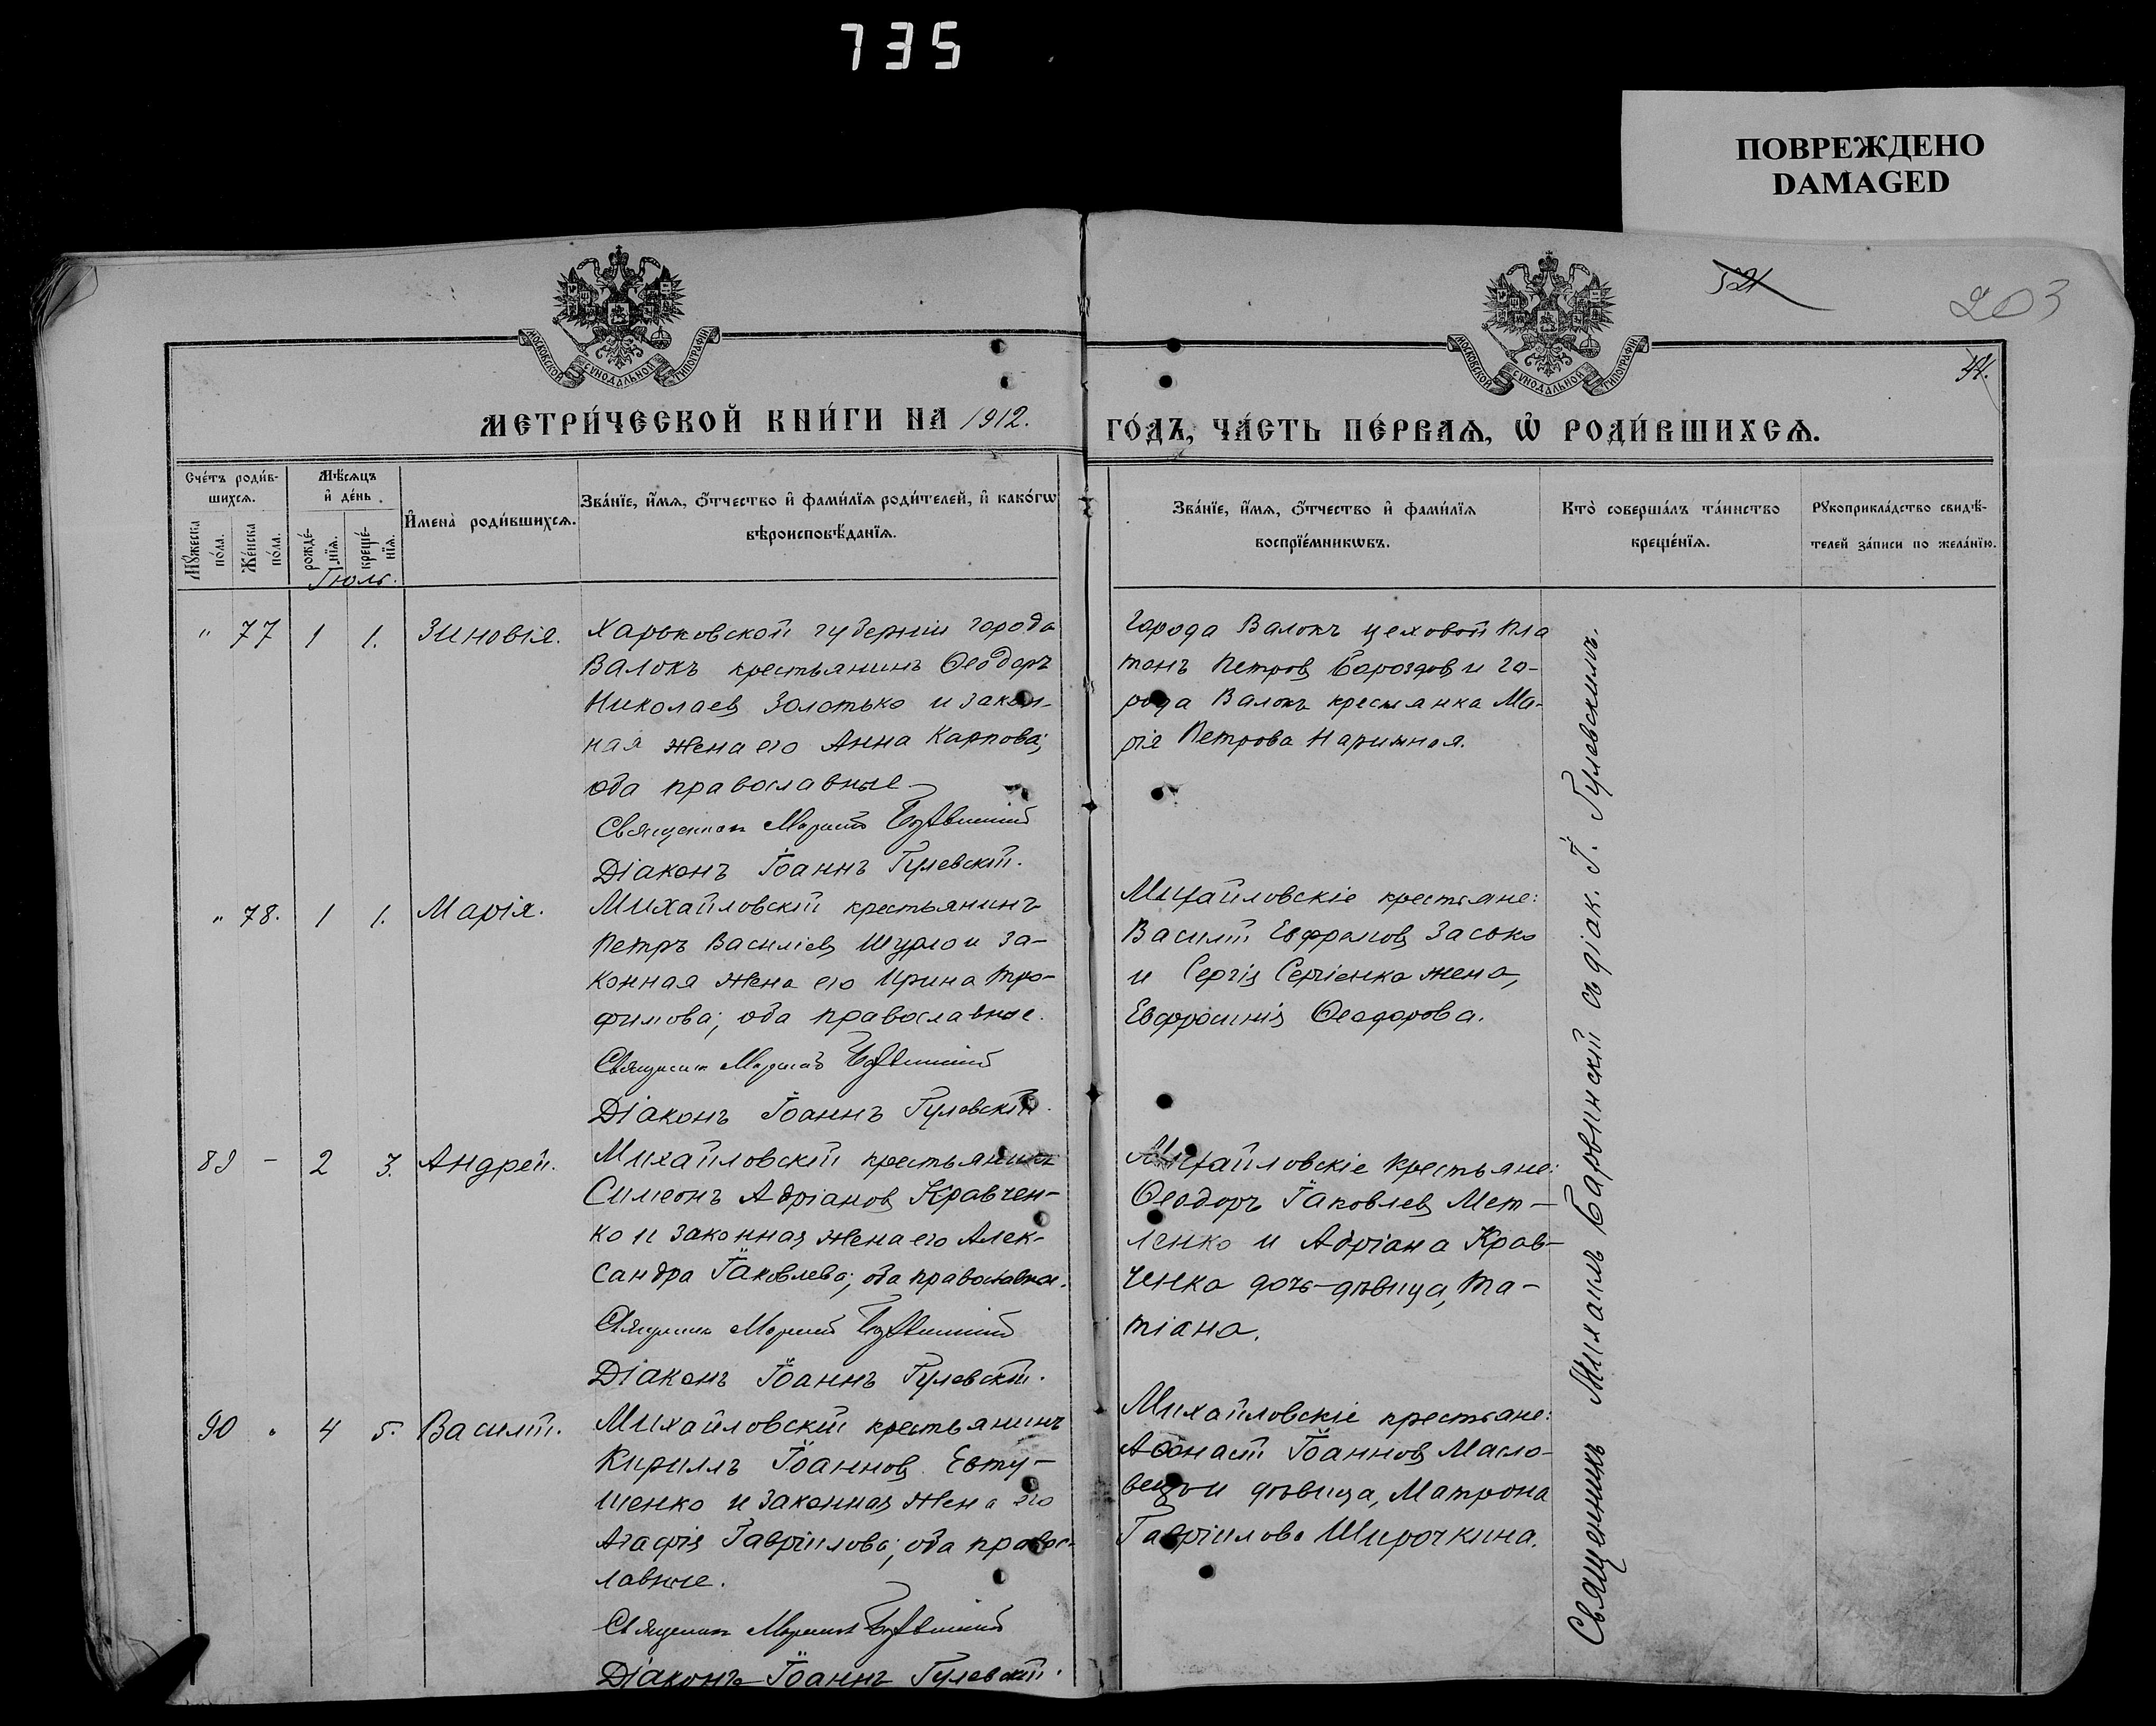 735
ПОВРЕЖДЕНО
DAMAGED
521
203
44.
МОСКОВСКОЙ СѴНОДАЛЬНОЙ ТИПОГРАФІИ
МОСКОВСКОЙ СѴНОДАЛЬНОЙ ТИПОГРАФІИ
МЕТРИ́ЧЕСКОЙ КНИ́ГИ НА 1912.
ГО́ДЪ, ЧА́СТЬ ПЕ́РВАѦ, Ѡ҆ РОДИ́ВШИХСѦ.
Сче́тъ роди́в-
шихсѧ.
Мꙋ́жеска по́ла.
Же́нска по́ла.
Мѣ́сѧцъ
и҆ де́нь
рожде́-
нїѧ.
креще́-
нїѧ.
И҆мена̀ роди́вшихсѧ.
Зва́нїе, и҆́мѧ, ѻ҆́тчество и҆ фами́лїѧ роди́телей, и҆ како́гѡ
вѣроисповѣ́данїѧ.
Зва́нїе, и҆́мѧ, ѻ҆́тчество и҆ фами́лїѧ
воспрїе́мникѡвъ.
Кто̀ соверша́лъ та́инство
креще́нїѧ.
Рꙋкоприкла́дство свидѣ́-
телей за́писи по жела́нїю.
Іюль.
" 77 1 1. Зиновія.
Харьковской губерніи города
Валокъ крестьянинъ Ѳеодоръ
Николаев Золотько и закон-
ная жена его Анна Карпова;
оба православные
Священник
Діаконъ Іоаннъ Гулевскій.
Города Валокъ цеховой Пла
тонъ Петров Бороздов и го-
рода Валокъ крестьянка Ма-
рія Петрова Нарижная.
" 78. 1 1. Марія.
Михайловскій крестьянинъ
Петръ Василіев Шурло и за-
конная жена его Ирина Тро-
фимова; оба православные.
Священник
Діаконъ Іоаннъ Гулевскій.
Михайловскіе крестьяне:
Василій Евфремов Засько
и Сергія Сергіенка жена,
Евфросинія Ѳеодорова.
89 – 2 3. Андрей.
Михайловскій крестьянинъ
Симеонъ Адріанов Кравчен-
ко и законная жена его Алек-
сандра Іаковлева; оба православные.
Священник
Діаконъ Іоаннъ Гулевскій.
Михайловскіе крестьяне:
Ѳеодоръ Іаковлев Мет-
ленко и Адріана Крав-
ченка дочь-дѣвица, Та-
тіана.
90 " 4 5. Василій.
Михайловскій крестьянинъ
Кириллъ Іоаннов Евту-
шенко и законная жена его
Агафія Гавріилова; оба правос-
лавные.
Священник
Діаконъ Іоаннъ Гулевскій.
Михайловскіе крестьяне:
Аѳонасій Іоаннов Масло-
вецъ и дѣвица, Матрона
Гавріилова Широчкина.
Священникъ Михаилъ Барвинскій съ діак. І. Гулевскимъ.